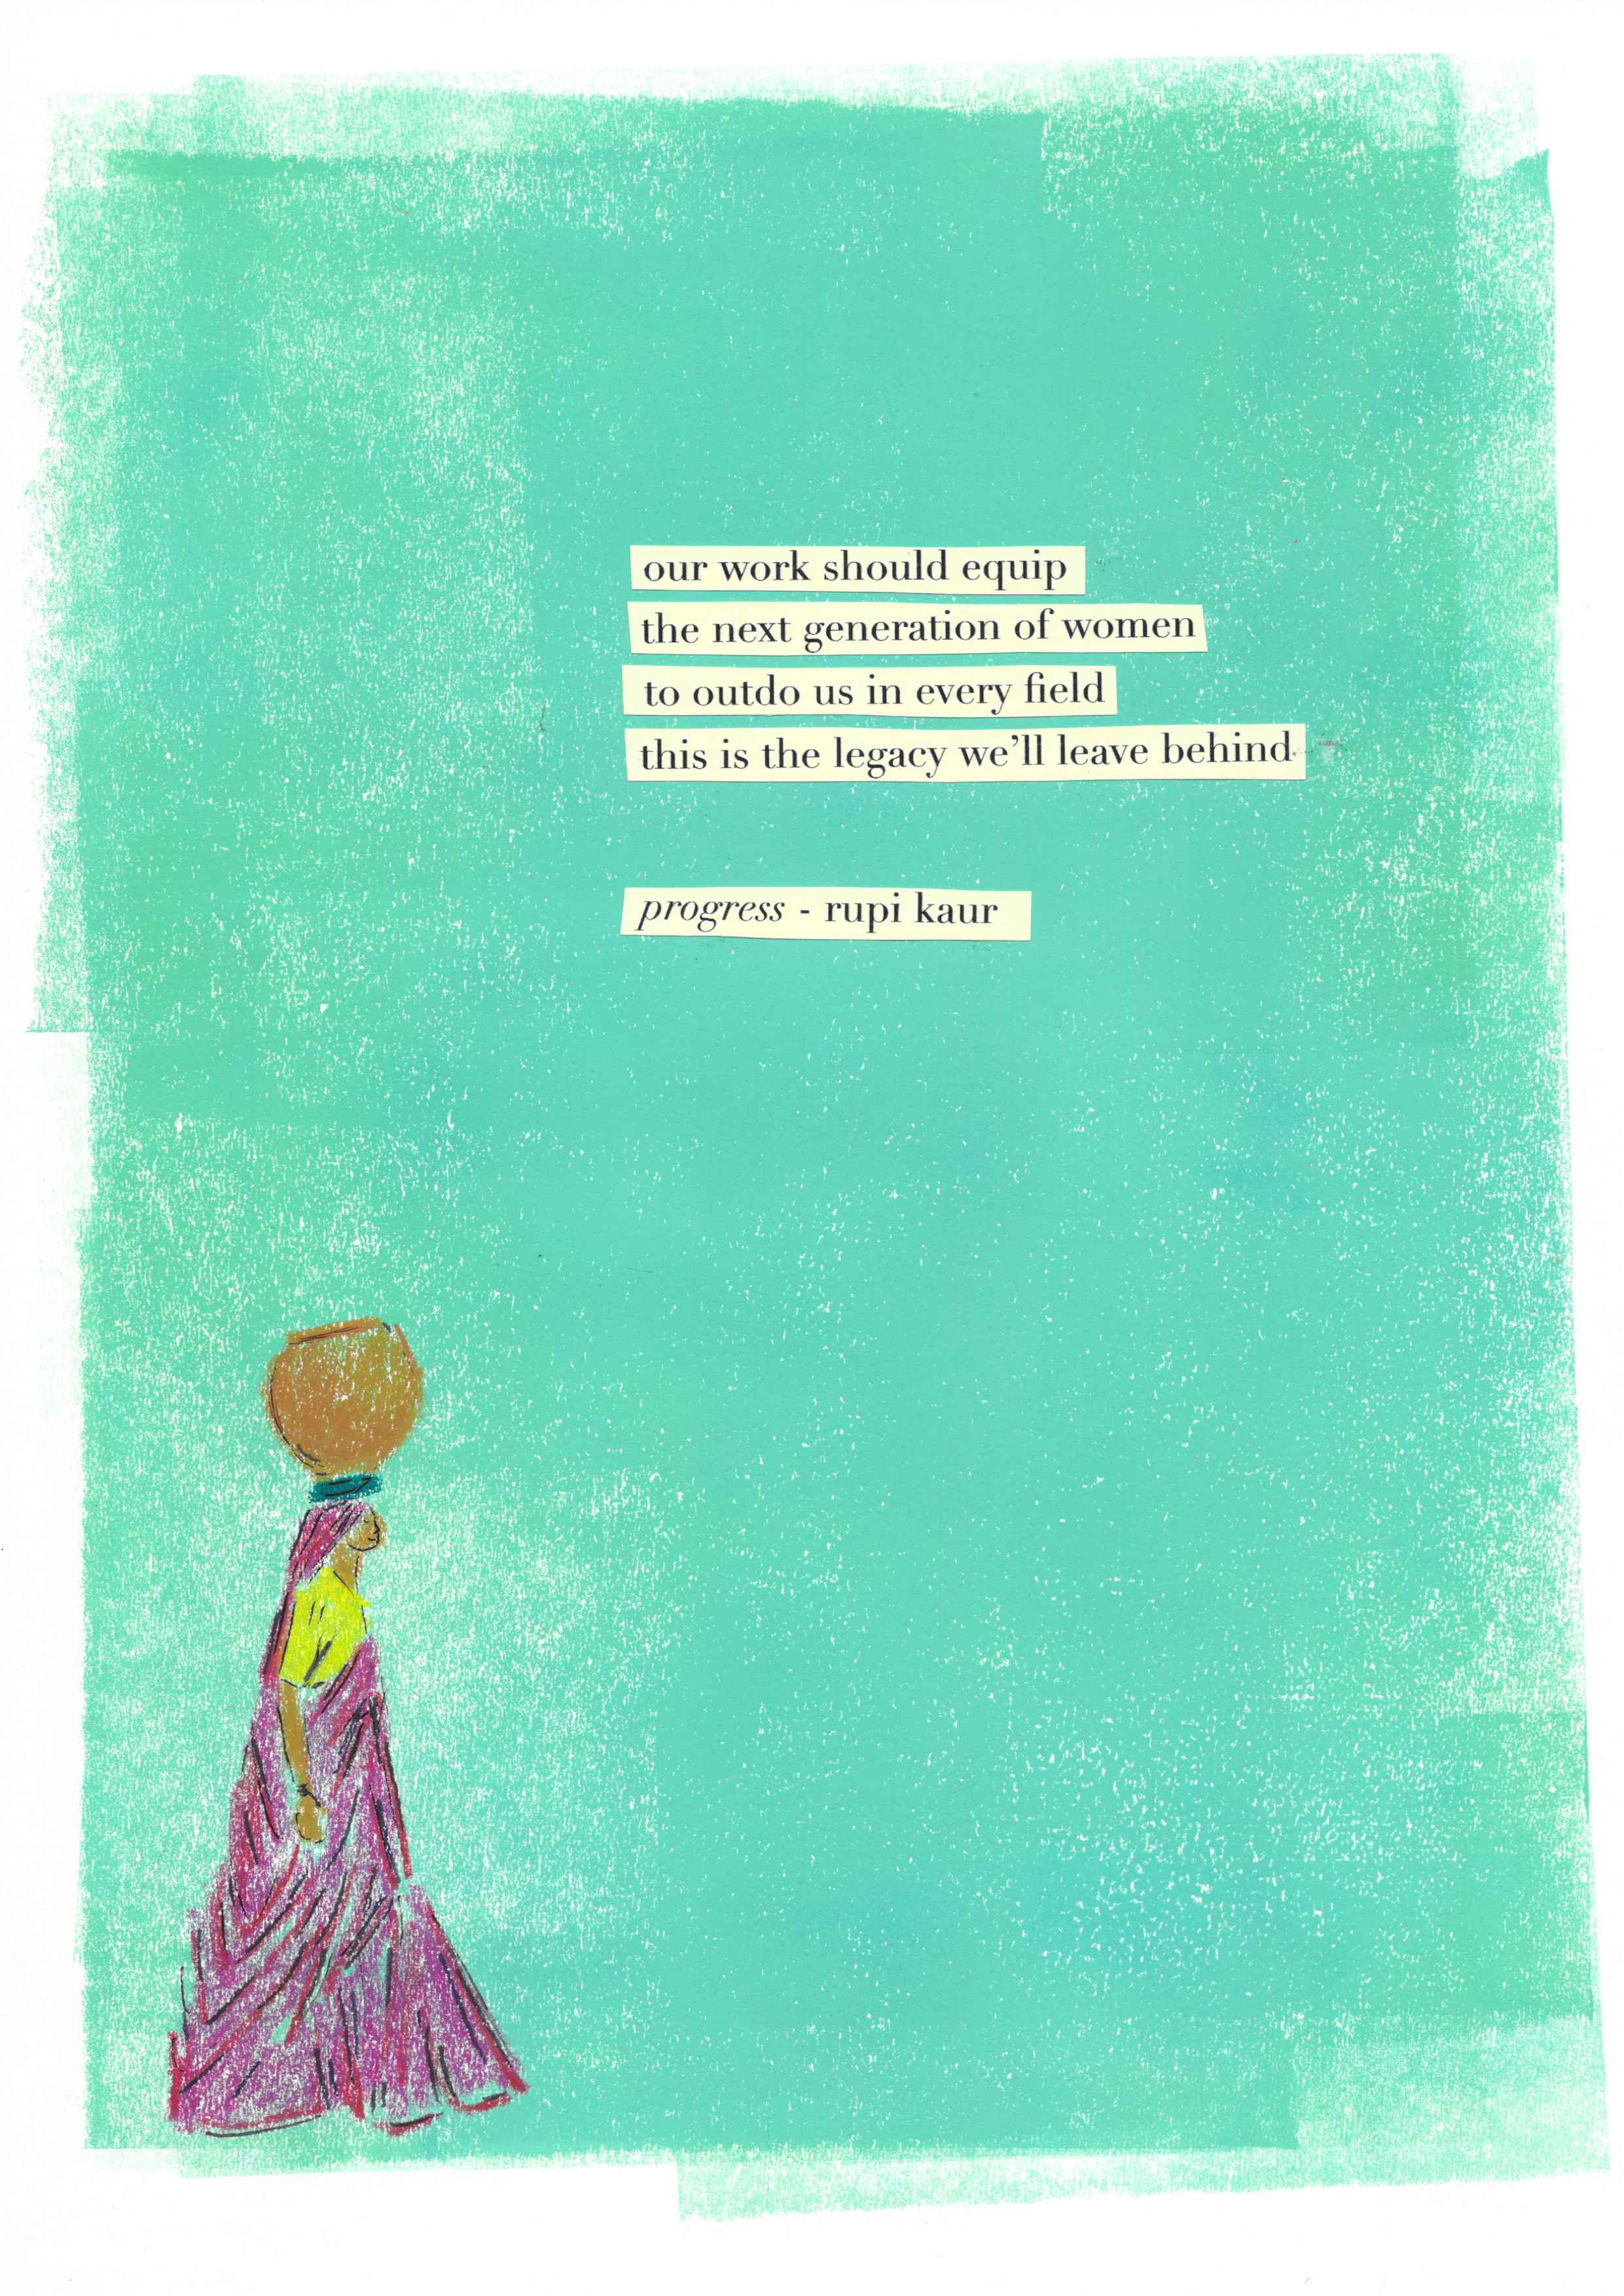 our work should equip
the next generation of women
to outdo us in every field
this is the legacy we'll leave behind
progress - rupi kaur